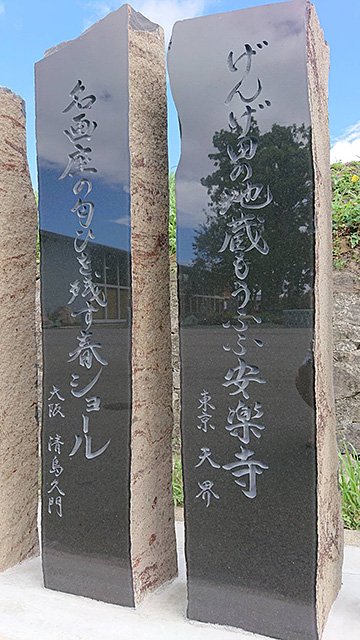 げんげ田の地蔵もうふふ安楽寺
東京 天界
名画座の匂ひを残す春ショール
大阪 清島久門